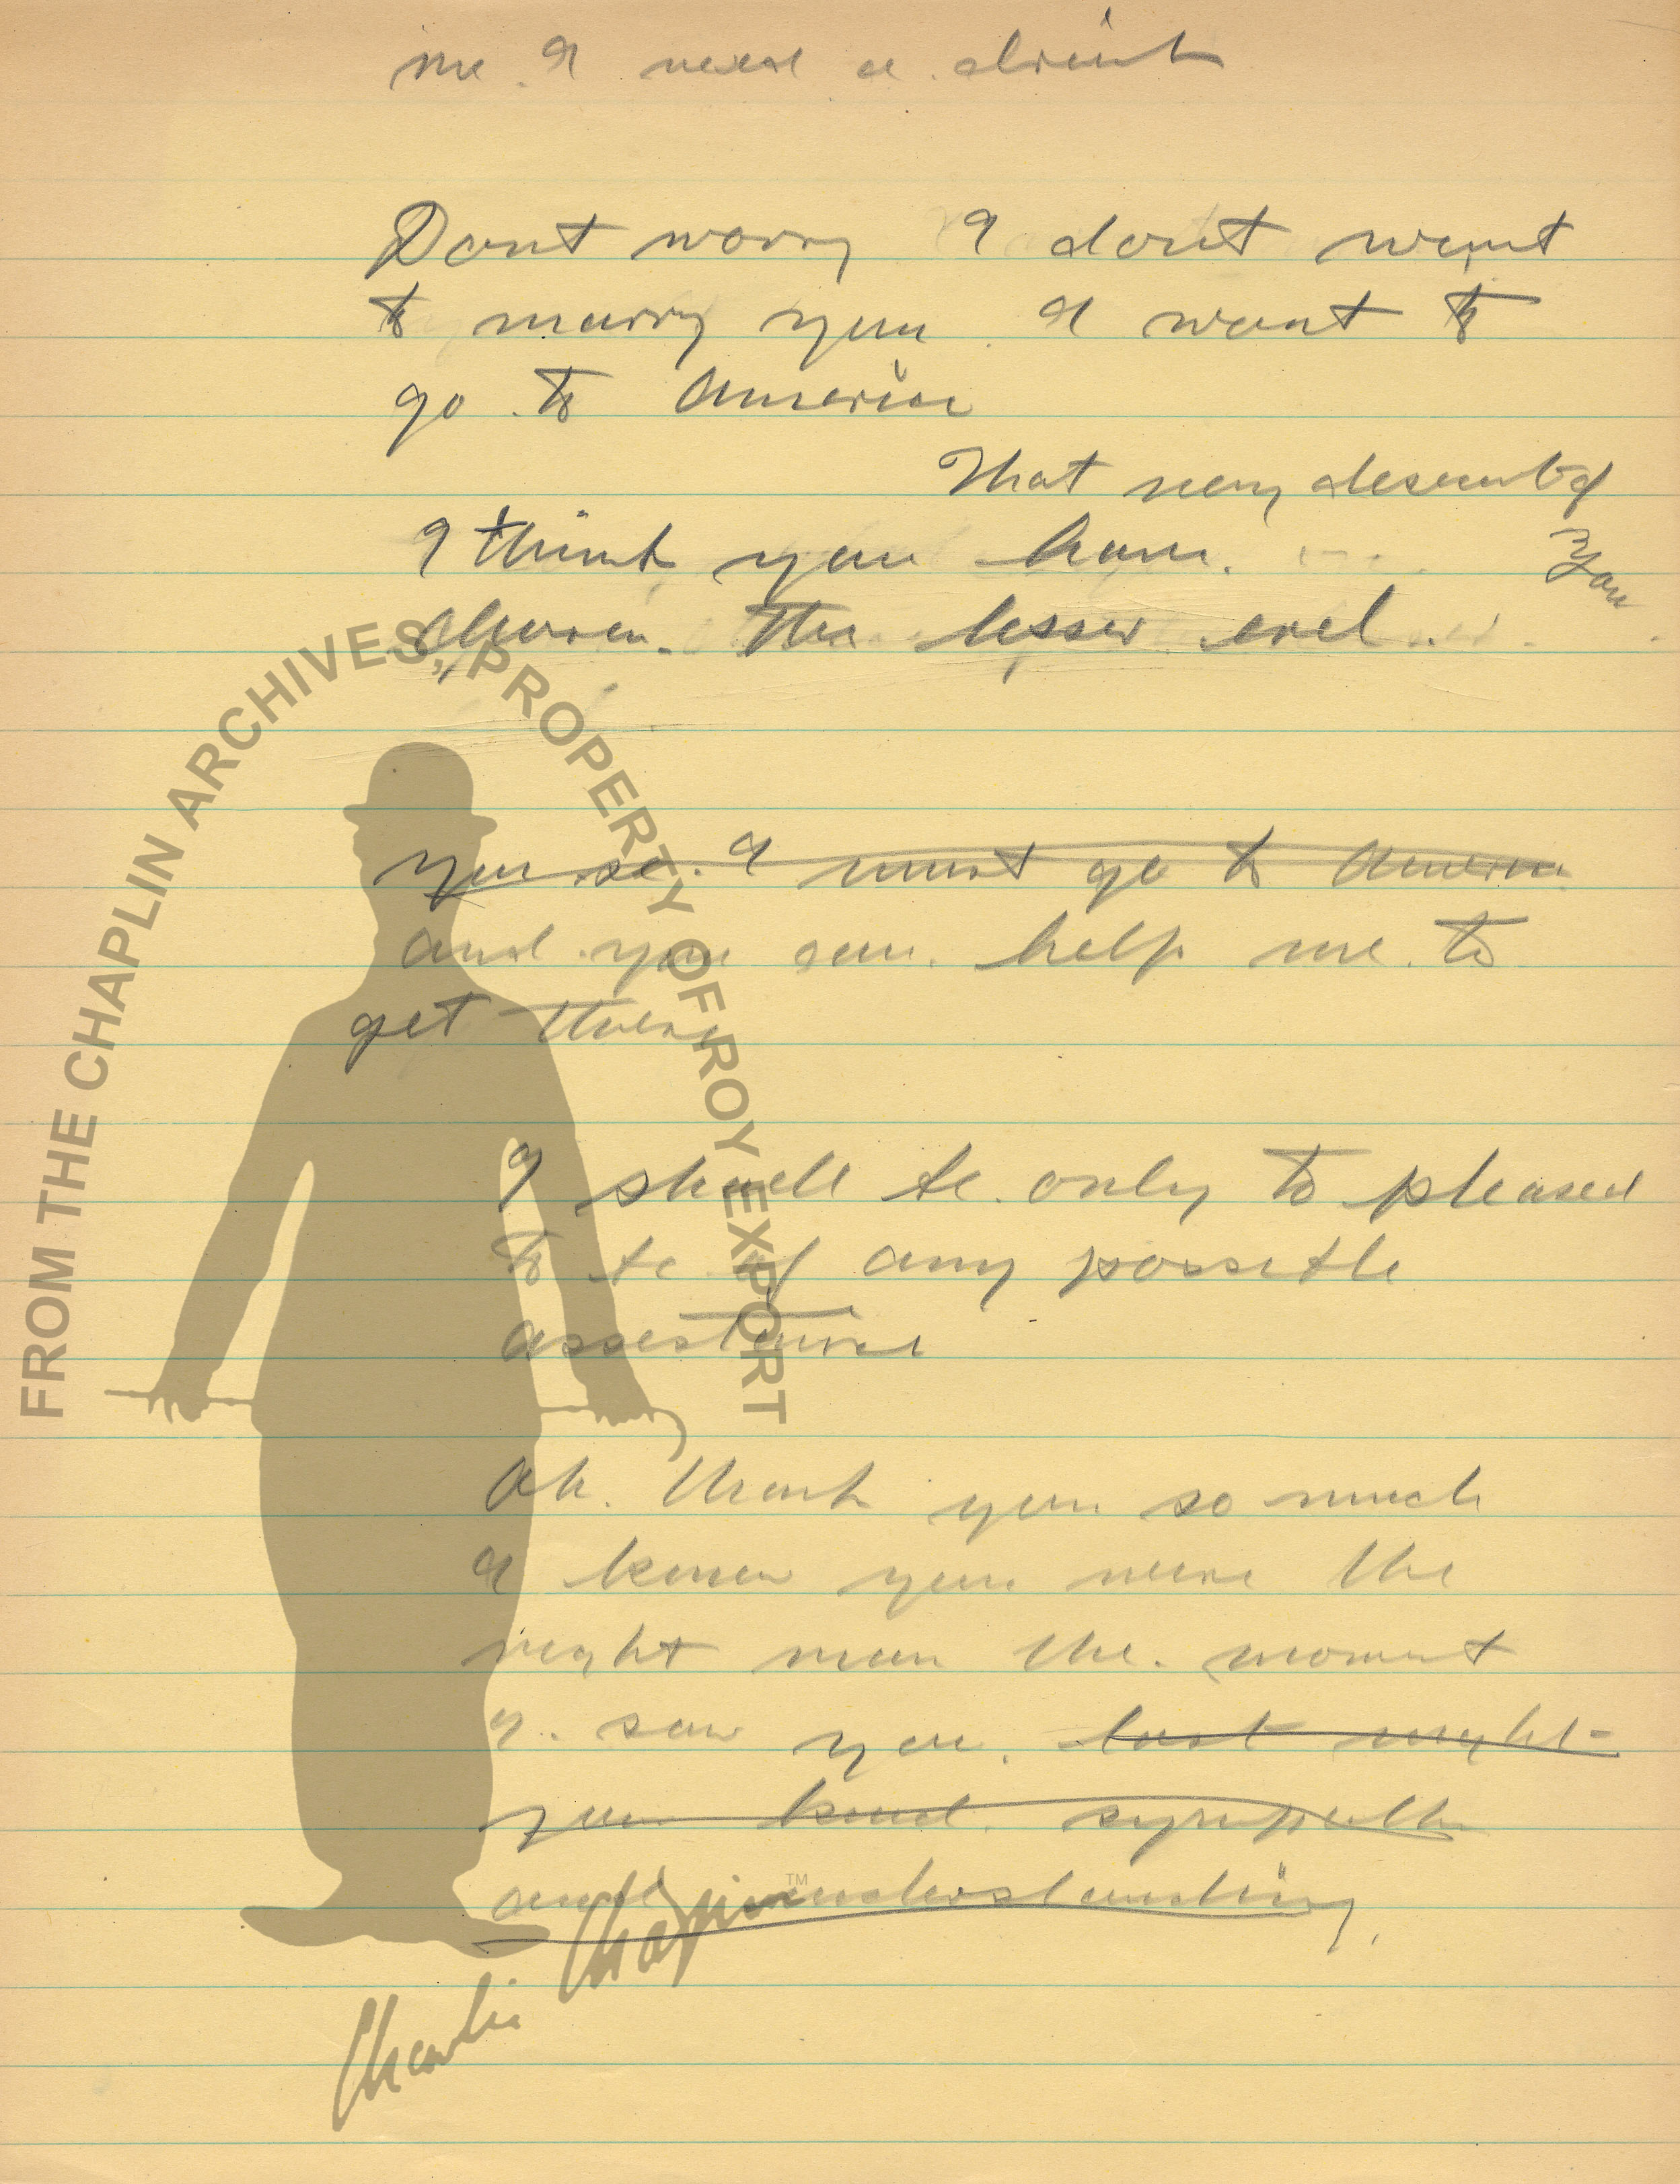 me. I need a drink
Dont worry I dont want
to marry you. I want to
go to America
That very descent of
you
I think you have.
chosen. the lesser evel.
you se. I must go to America
and you can. help me. to
get there
I shall be only to pleased
to be of any possible
assestance
Oh. thank you so much
I knew you were the
right man the. moment
I. saw you. last night-
your kind. sympath
and understanding,
FROM THE CHAPLIN ARCHIVES, PROPERTY OF ROY EXPORT
Charlie Chaplin ™